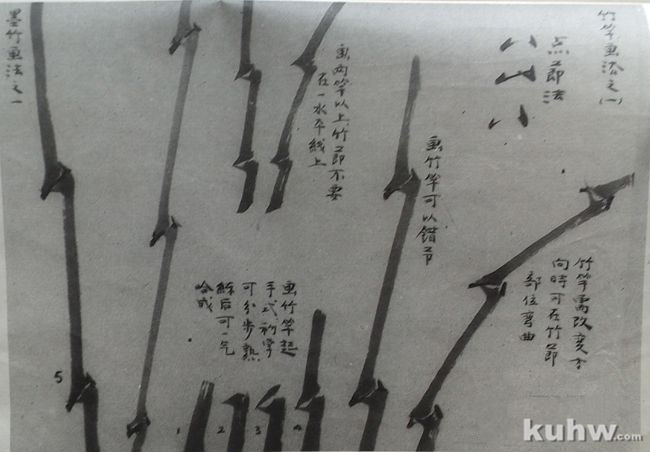 竹竿画法之(一)
点節法
竹竿需改变方
向時可在竹節
部位弯曲
画竹竿可以错节
画两竿以上竹節不要
在一水平线上
画竹竿起
手式初学
可分步熟
練后可一气
哈成
墨竹画法之一
1
2
3
4
5
kuhw.com